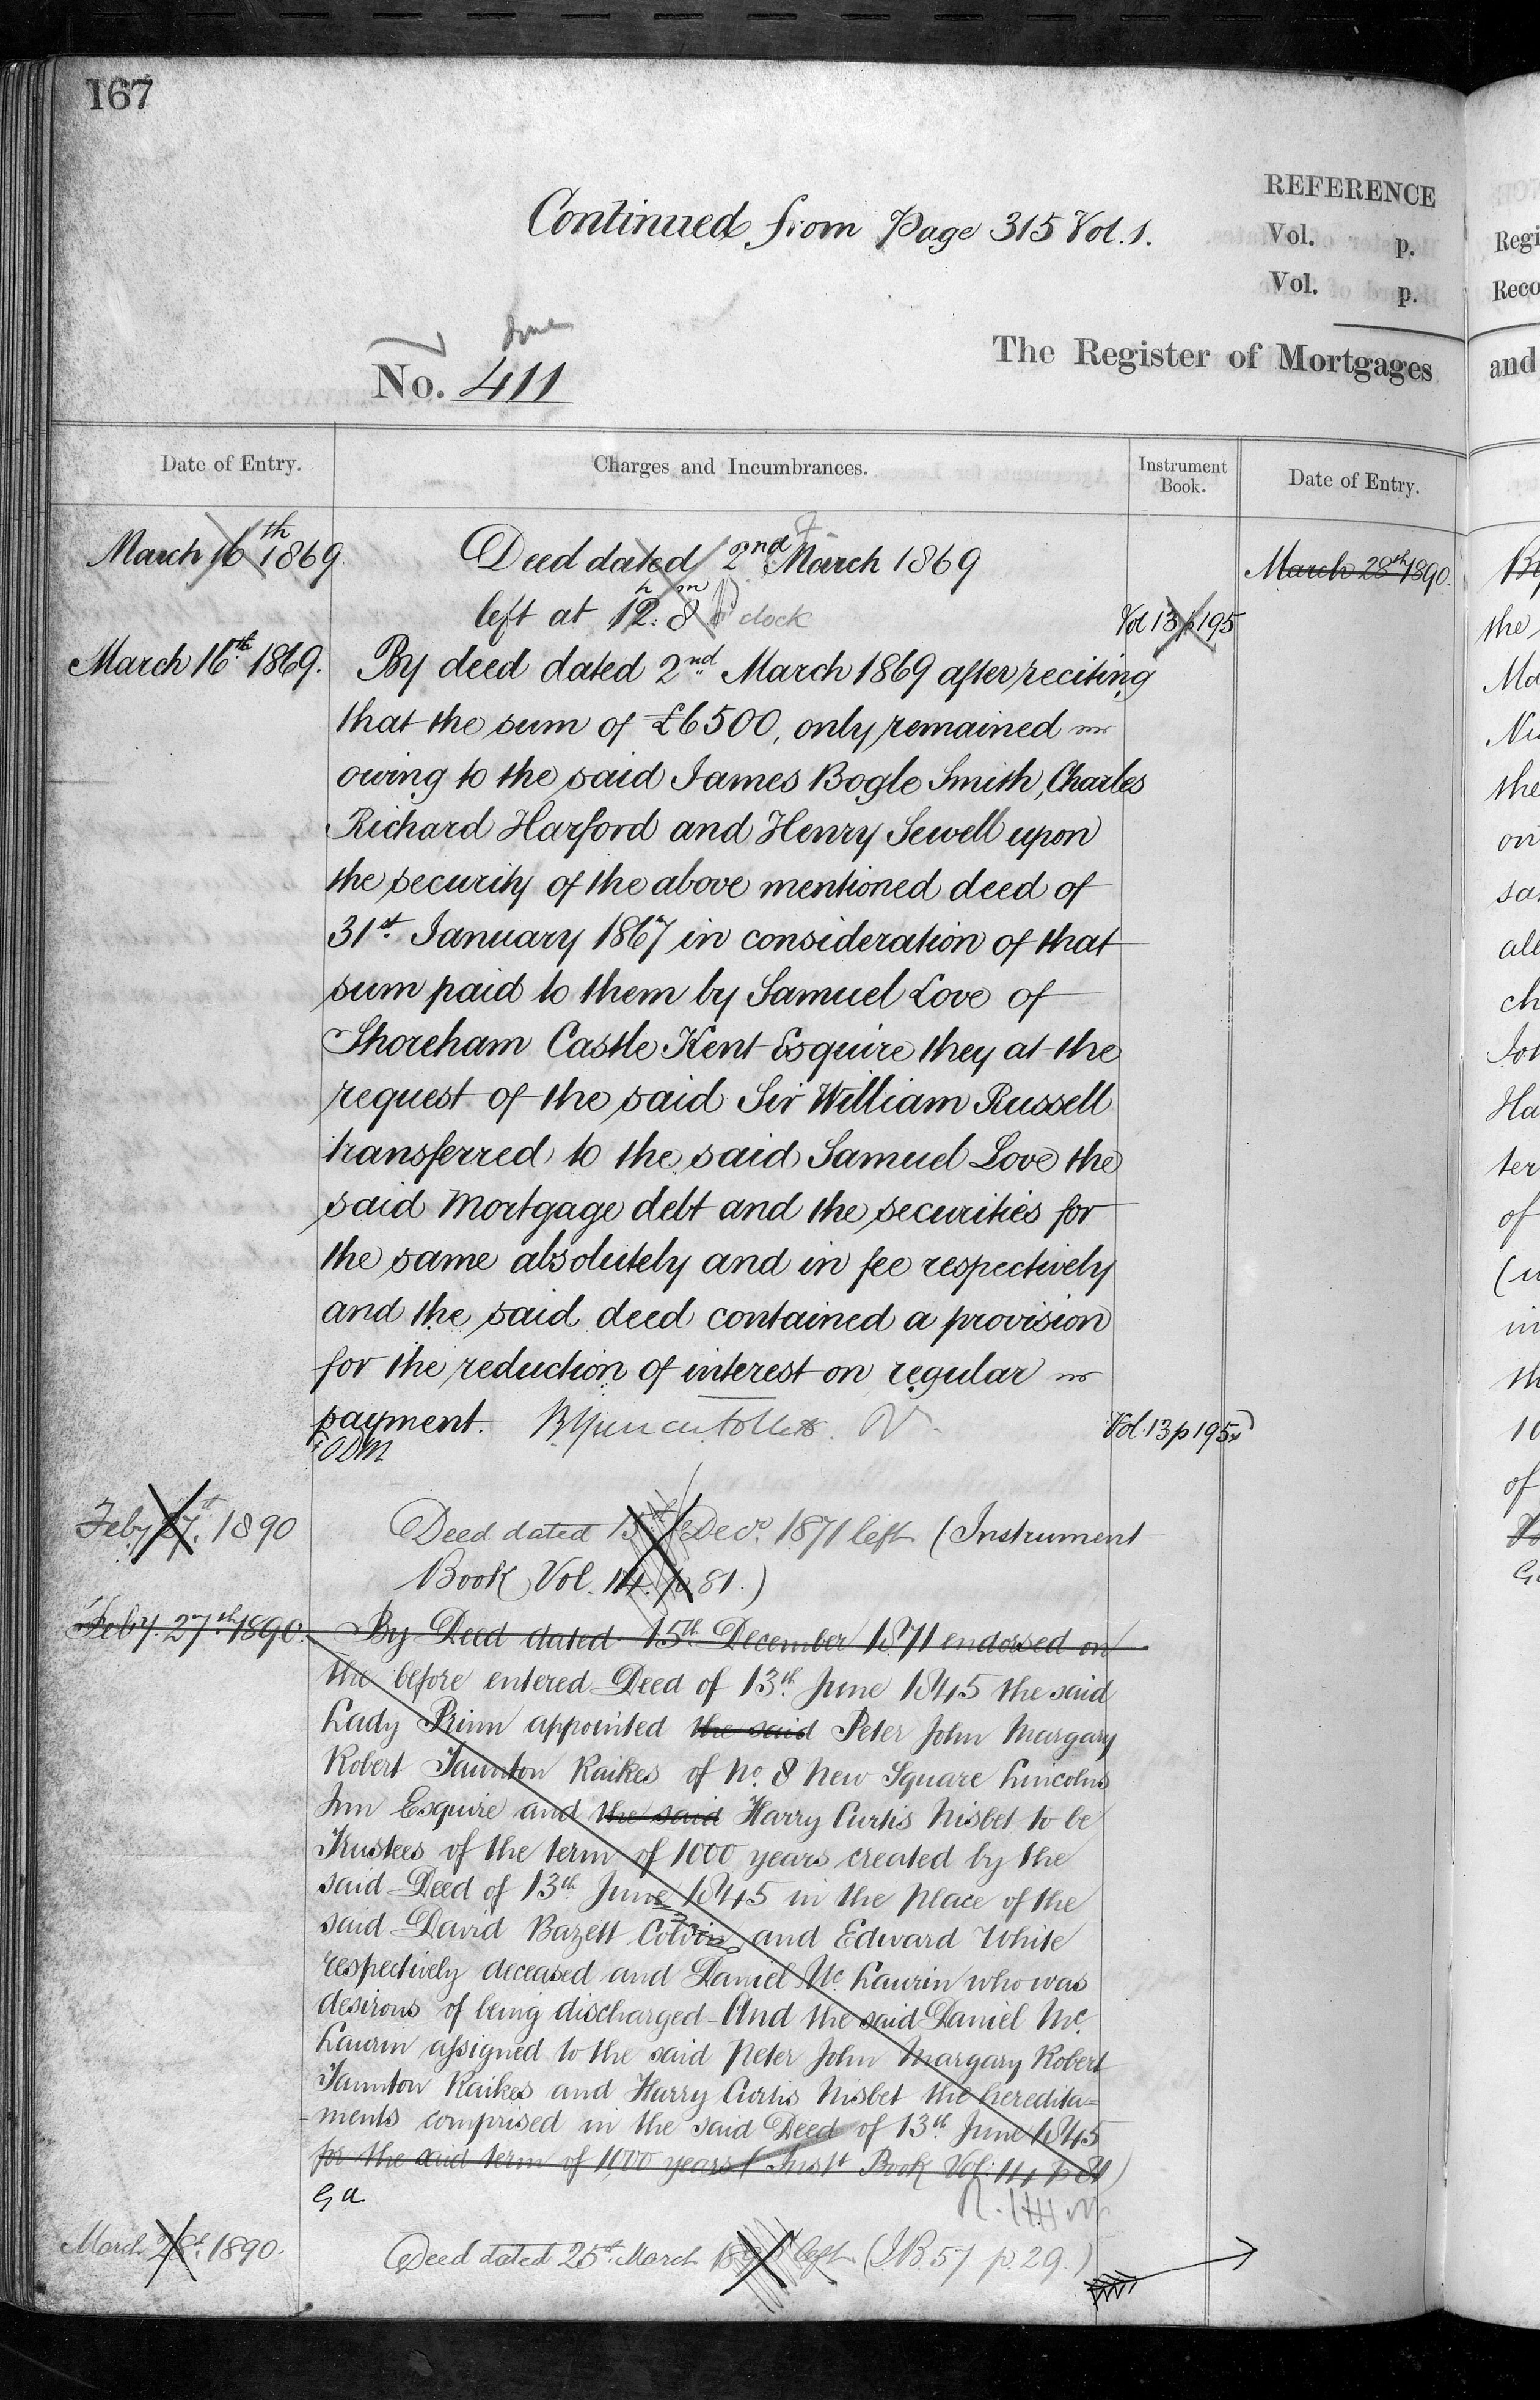 167
Continued from Page 315 Vol. 1.
REFERENCE
Vol. p.
Vol. p.
done
No. 411
The Register of Mortgages
Date of Entry. Charges and Incumbrances. Instrument Book. Date of Entry.
March 16th 1869 Deed dated 2nd March 1869 March 28th 1890.
left at 12h. 8m o'clock Vol 13 p 195
March 16th 1869. By deed dated 2nd March 1869 after reciting
that the sum of £6500, only remained
owing to the said James Bogle Smith, Charles
Richard Harford and Henry Sewell upon
the security of the above mentioned deed of
31st. January 1867 in consideration of that
sum paid to them by Samuel Love of
Shoreham Castle Kent Esquire they at the
request of the said Sir William Russell
transferred to the said Samuel Love the
said Mortgage debt and the securities for
the same absolutely and in fee respectively
and the said deed contained a provision
for the reduction of interest on regular
payment. Vol. 13 p 195
Feby 27th. 1890 Deed dated 15th Decr. 1871 left (Instrument
Book Vol. 14. p 81.)
Feby. 27th 1890. By Deed dated 15th December 1871 endorsed on
the before entered Deed of 13th. June 1845 the said
Lady Prinn appointed the said Peter John Margary
Robert Taunton Raikes of No. 8 New Square Lincolns
Inn Esquire and the said Harry Curtis Nisbet to be
Trustees of the term of 1000 years created by the
said Deed of 13th. June 1845 in the place of the
said David Bazett Colvin and Edward White
respectively deceased and Daniel Mc. Laurin who was
desirous of being discharged - And the said Daniel Mc.
Laurin assigned to the said Peter John Margary Robert
Taunton Raikes and Harry Curtis Nisbet the heredita=
=ments comprised in the said Deed of 13th. June 1845
for the said term of 1000 years (Inst Book Vol: 14 p 81)
G a
March 28th. 1890. Deed dated 25th. March 1890 left (I.B. 57. p. 29.)
Regi
Reco
and
the
the
on
all
ch
Ha
ter
of
in
th
10
of